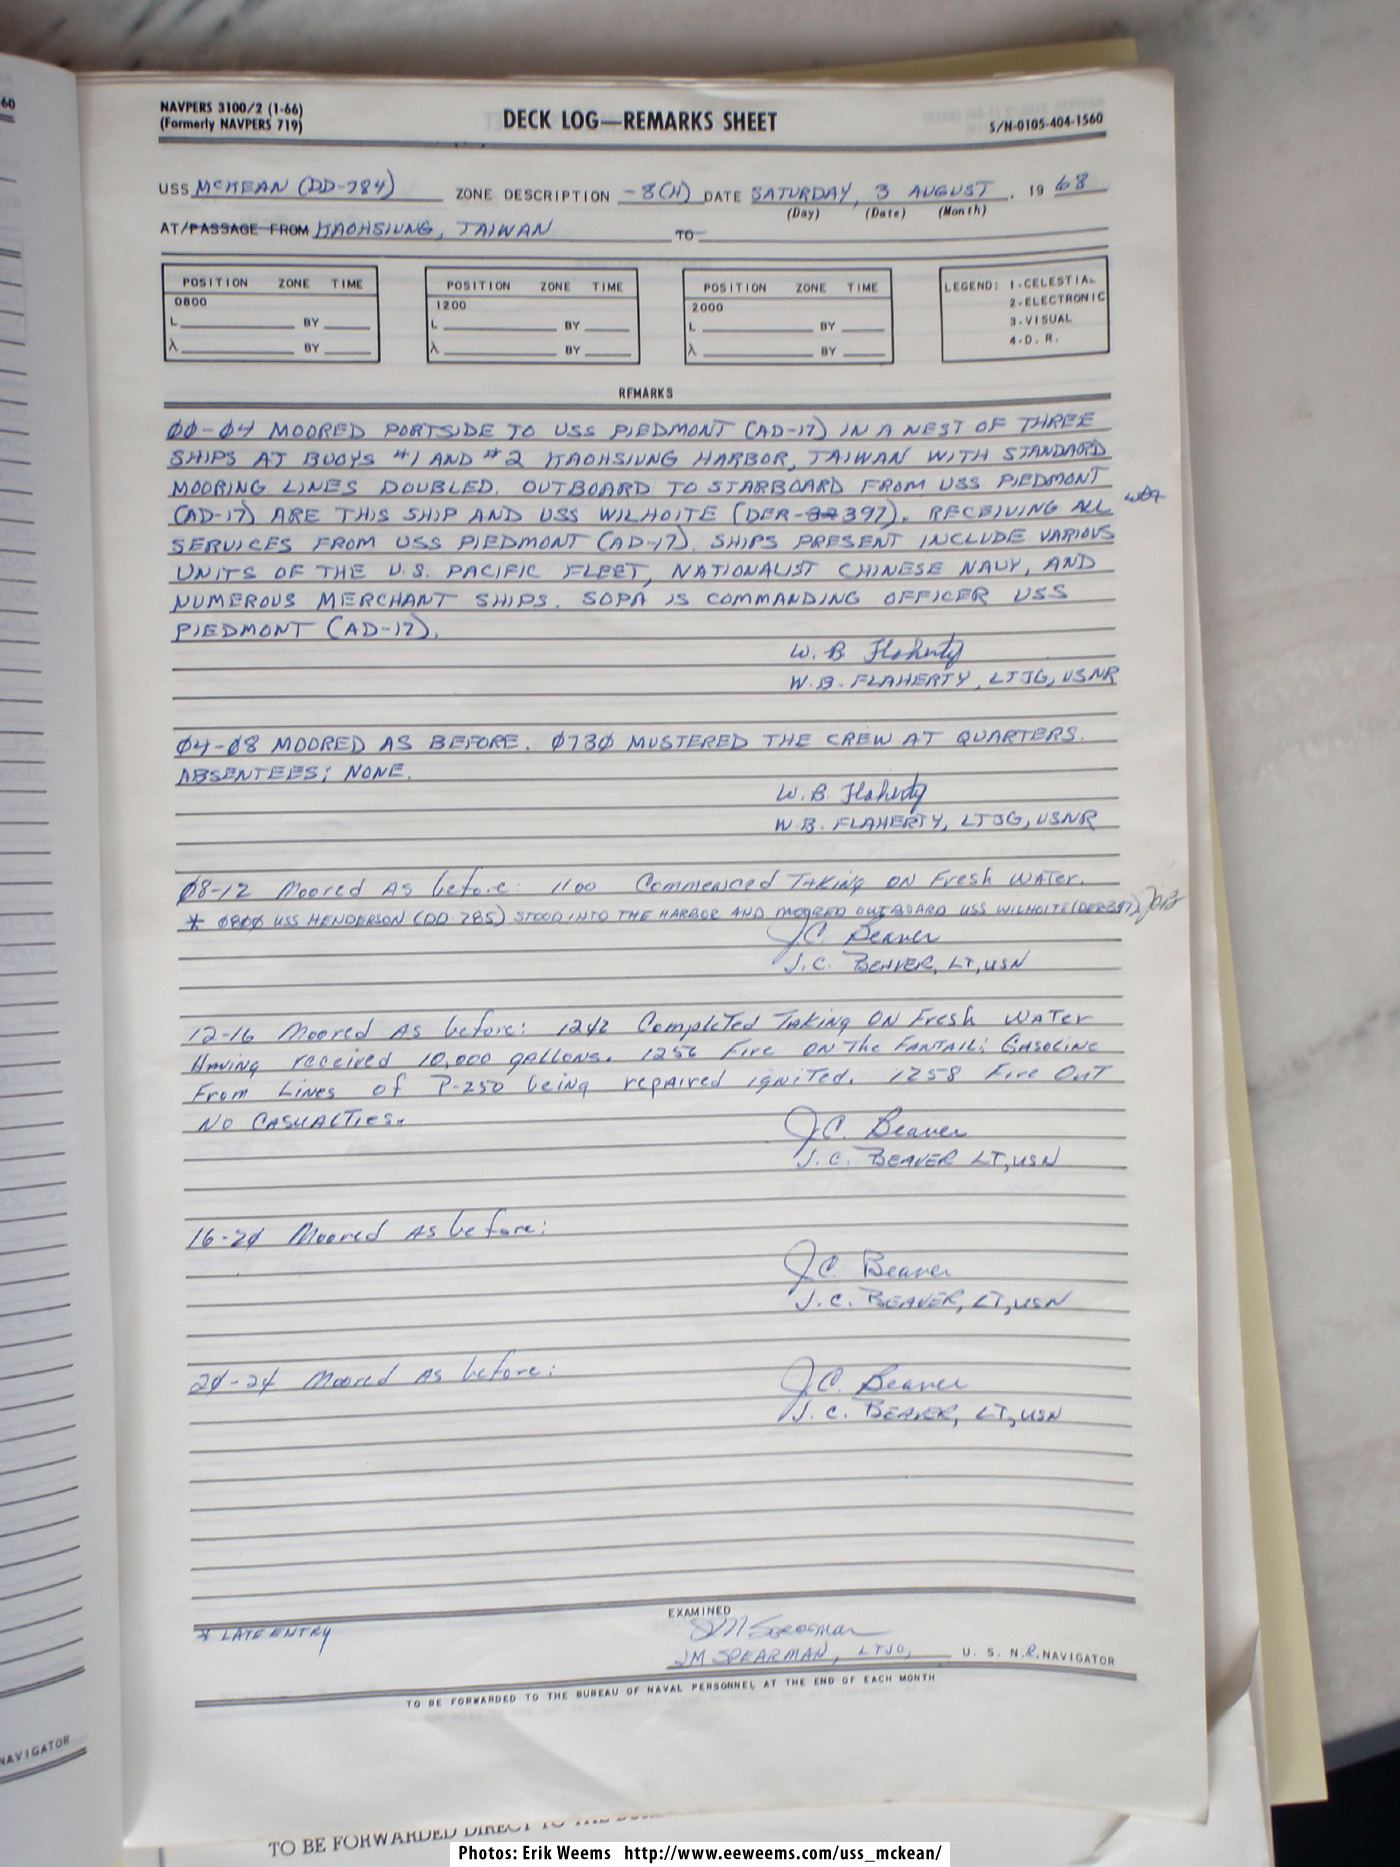 60
NAVPERS 3100/2 (1-66)
(Formerly NAVPERS 719)
DECK LOG—REMARKS SHEET
S/N-0105-404-1560
USS MCKEAN (DD-784) ZONE DESCRIPTION -8(H) DATE SATURDAY, 3 AUGUST, 19 68
(Day) (Date) (Month)
AT/PASSAGE FROM KAOHSIUNG, TAIWAN TO
POSITION ZONE TIME
0800
L BY
λ BY
POSITION ZONE TIME
1200
L BY
λ BY
POSITION ZONE TIME
2000
L BY
λ BY
LEGEND: 1-CELESTIAL
2-ELECTRONIC
3-VISUAL
4-D. R.
REMARKS
ØØ-Ø4 MOORED PORTSIDE TO USS PIEDMONT (AD-17) IN A NEST OF THREE
SHIPS AT BUOYS #1 AND #2 KAOHSIUNG HARBOR, TAIWAN WITH STANDARD
MOORING LINES DOUBLED. OUTBOARD TO STARBOARD FROM USS PIEDMONT
(AD-17) ARE THIS SHIP AND USS WILHOITE (DER-397). RECEIVING ALL
SERVICES FROM USS PIEDMONT (AD-17). SHIPS PRESENT INCLUDE VARIOUS
UNITS OF THE U.S. PACIFIC FLEET, NATIONALIST CHINESE NAVY, AND
NUMEROUS MERCHANT SHIPS. SOPA IS COMMANDING OFFICER USS
PIEDMONT (AD-17).
W. B. Flaherty
W.B. FLAHERTY, LTJG, USNR
Ø4-Ø8 MOORED AS BEFORE. Ø73Ø MUSTERED THE CREW AT QUARTERS.
ABSENTEES: NONE.
W. B. Flaherty
W.B. FLAHERTY, LTJG, USNR
Ø8-12 Moored As before: 1100 Commenced Taking on Fresh Water.
* Ø8ØØ USS HENDERSON (DD 785) STOOD INTO THE HARBOR AND MOORED OUTBOARD USS WILHOITE (DER397). JCB
J.C. Beaver
J.C. BEAVER, LT, USN
12-16 Moored As before: 1242 Completed Taking ON Fresh WATer
Having received 10,000 gallons. 1256 Fire ON The FANTAIL: Gasoline
From Lines of P-250 being repaired ignited. 1258 Fire OUT
NO CASUALTies.
J.C. Beaver
J.C. BEAVER LT, USN
16-2Ø Moored As before:
J.C. Beaver
J.C. BEAVER, LT, USN
2Ø-24 Moored As before:
J.C. Beaver
J.C. BEAVER, LT, USN
* LATE ENTRY
EXAMINED
JM Spearman
JM SPEARMAN, LTJG, U. S. N.R. NAVIGATOR
TO BE FORWARDED TO THE BUREAU OF NAVAL PERSONNEL AT THE END OF EACH MONTH
NAVIGATOR
TO BE FORWARDED DIRECT TO THE
Photos: Erik Weems http://www.eeweems.com/uss_mckean/